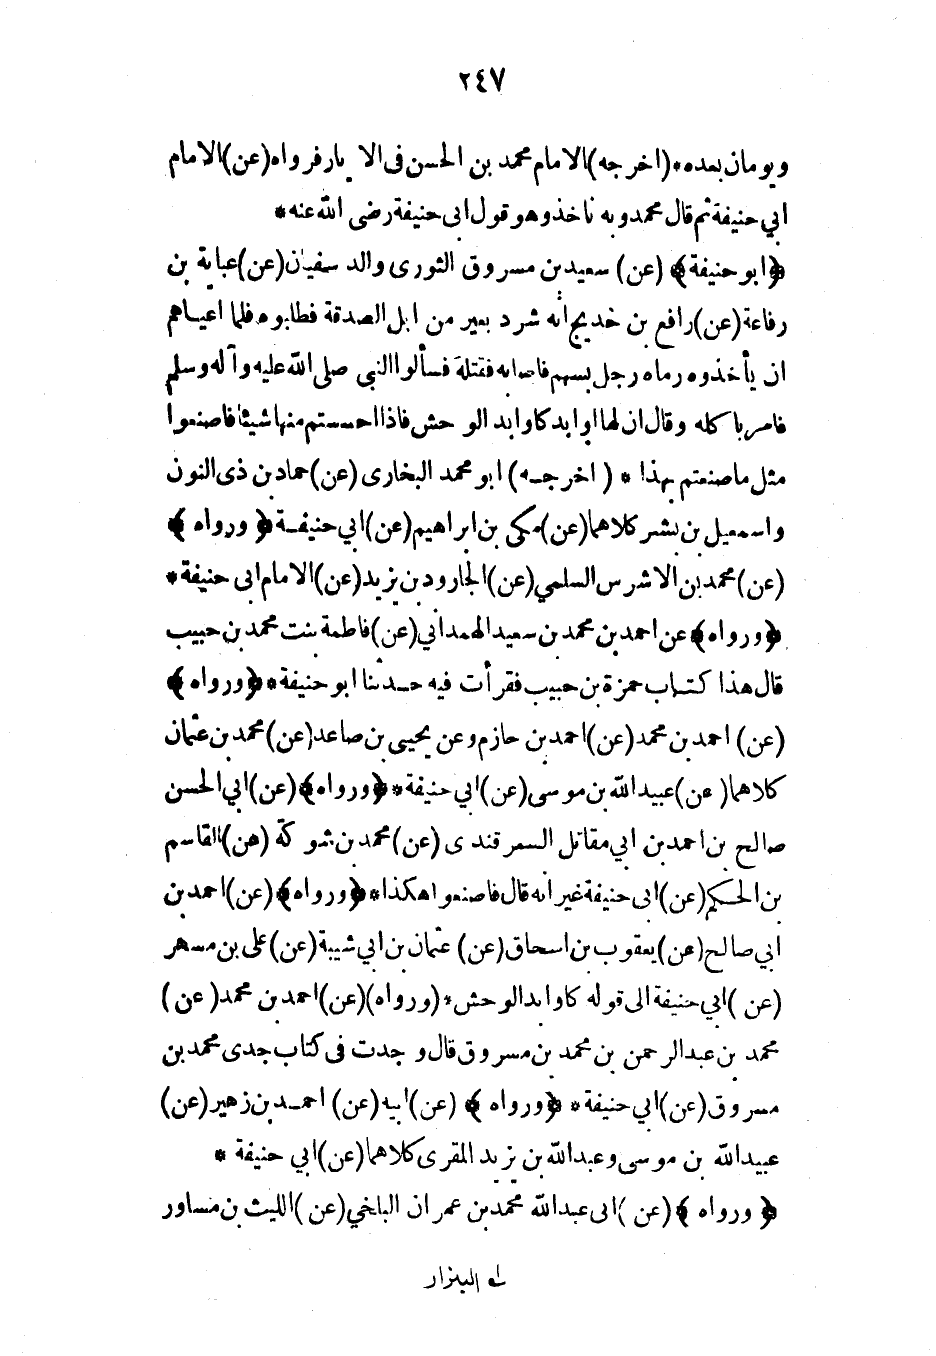 ٢٤٧
ويومان بعده*(اخرجه)الامام محمد بن الحسن فى الآثار فرواه(عن)الامام
ابي حنيفة ثم قال محمد وبه ناخذ وهو قول ابى حنيفة رضى الله عنه*
﴿ابو حنيفة﴾ (عن) سعيد بن مسروق الثورى والد سفيان(عن)عباية بن
رفاعة(عن)رافع بن خديج انه شرد بعير من ابل الصدقة فطلبوه فلما اعياهم
ان يأخذوه رماه رجل بسهم فاصابه فقتله فسألوا النبي صلى الله عليه وآله وسلم
فامر باكله وقال ان لها اوابد كاوابد الوحش فاذا احسستم منها شيئا فاصنعوا
مثل ما صنعتم بهذا * (اخرجه) ابو محمد البخارى (عن) حماد بن ذى النون
واسمعيل بن بشر كلاهما(عن)مكي بن ابراهيم(عن)ابي حنيفة﴿ورواه﴾
(عن)محمد بن الاشرس السلمي(عن)الجارود بن يزيد(عن)الامام ابى حنيفة*
﴿ورواه﴾عن احمد بن محمد بن سعيد الهمداني(عن)فاطمة بنت محمد بن حبيب
قال هذا كتاب حمزة بن حبيب فقرأت فيه حدثنا ابو حنيفة*﴿ورواه﴾
(عن) احمد بن محمد(عن)احمد بن حازم وعن يحيى بن صاعد(عن)محمد بن عثمان
كلاهما(عن)عبيدالله بن موسى(عن)ابي حنيفة*﴿ورواه﴾(عن)ابي الحسن
صالح بن احمد بن ابي مقاتل السمرقندى (عن)محمد بن شوكة (عن)القاسم
بن الحكم(عن)ابى حنيفة غير انه قال فاصنعوا هكذا*﴿ورواه﴾(عن)احمد بن
ابي صالح(عن)يعقوب بن اسحاق(عن) عثمان بن ابي شيبة(عن)على بن مسهر
(عن)ابي حنيفة الى قوله كاوابد الوحش*(ورواه)(عن)احمد بن محمد(عن)
محمد بن عبد الرحمن بن محمد بن مسروق قال وجدت فى كتاب جدى محمد بن
مسروق(عن)ابي حنيفة*﴿ورواه﴾ (عن)ابيه(عن) احمد بن زهير(عن)
عبيدالله بن موسى وعبدالله بن يزيد المقرى كلاهما(عن)ابي حنيفة *
﴿ورواه﴾(عن)ابى عبدالله محمد بن عمران البلخي(عن)الليث بن مساور
البنزار